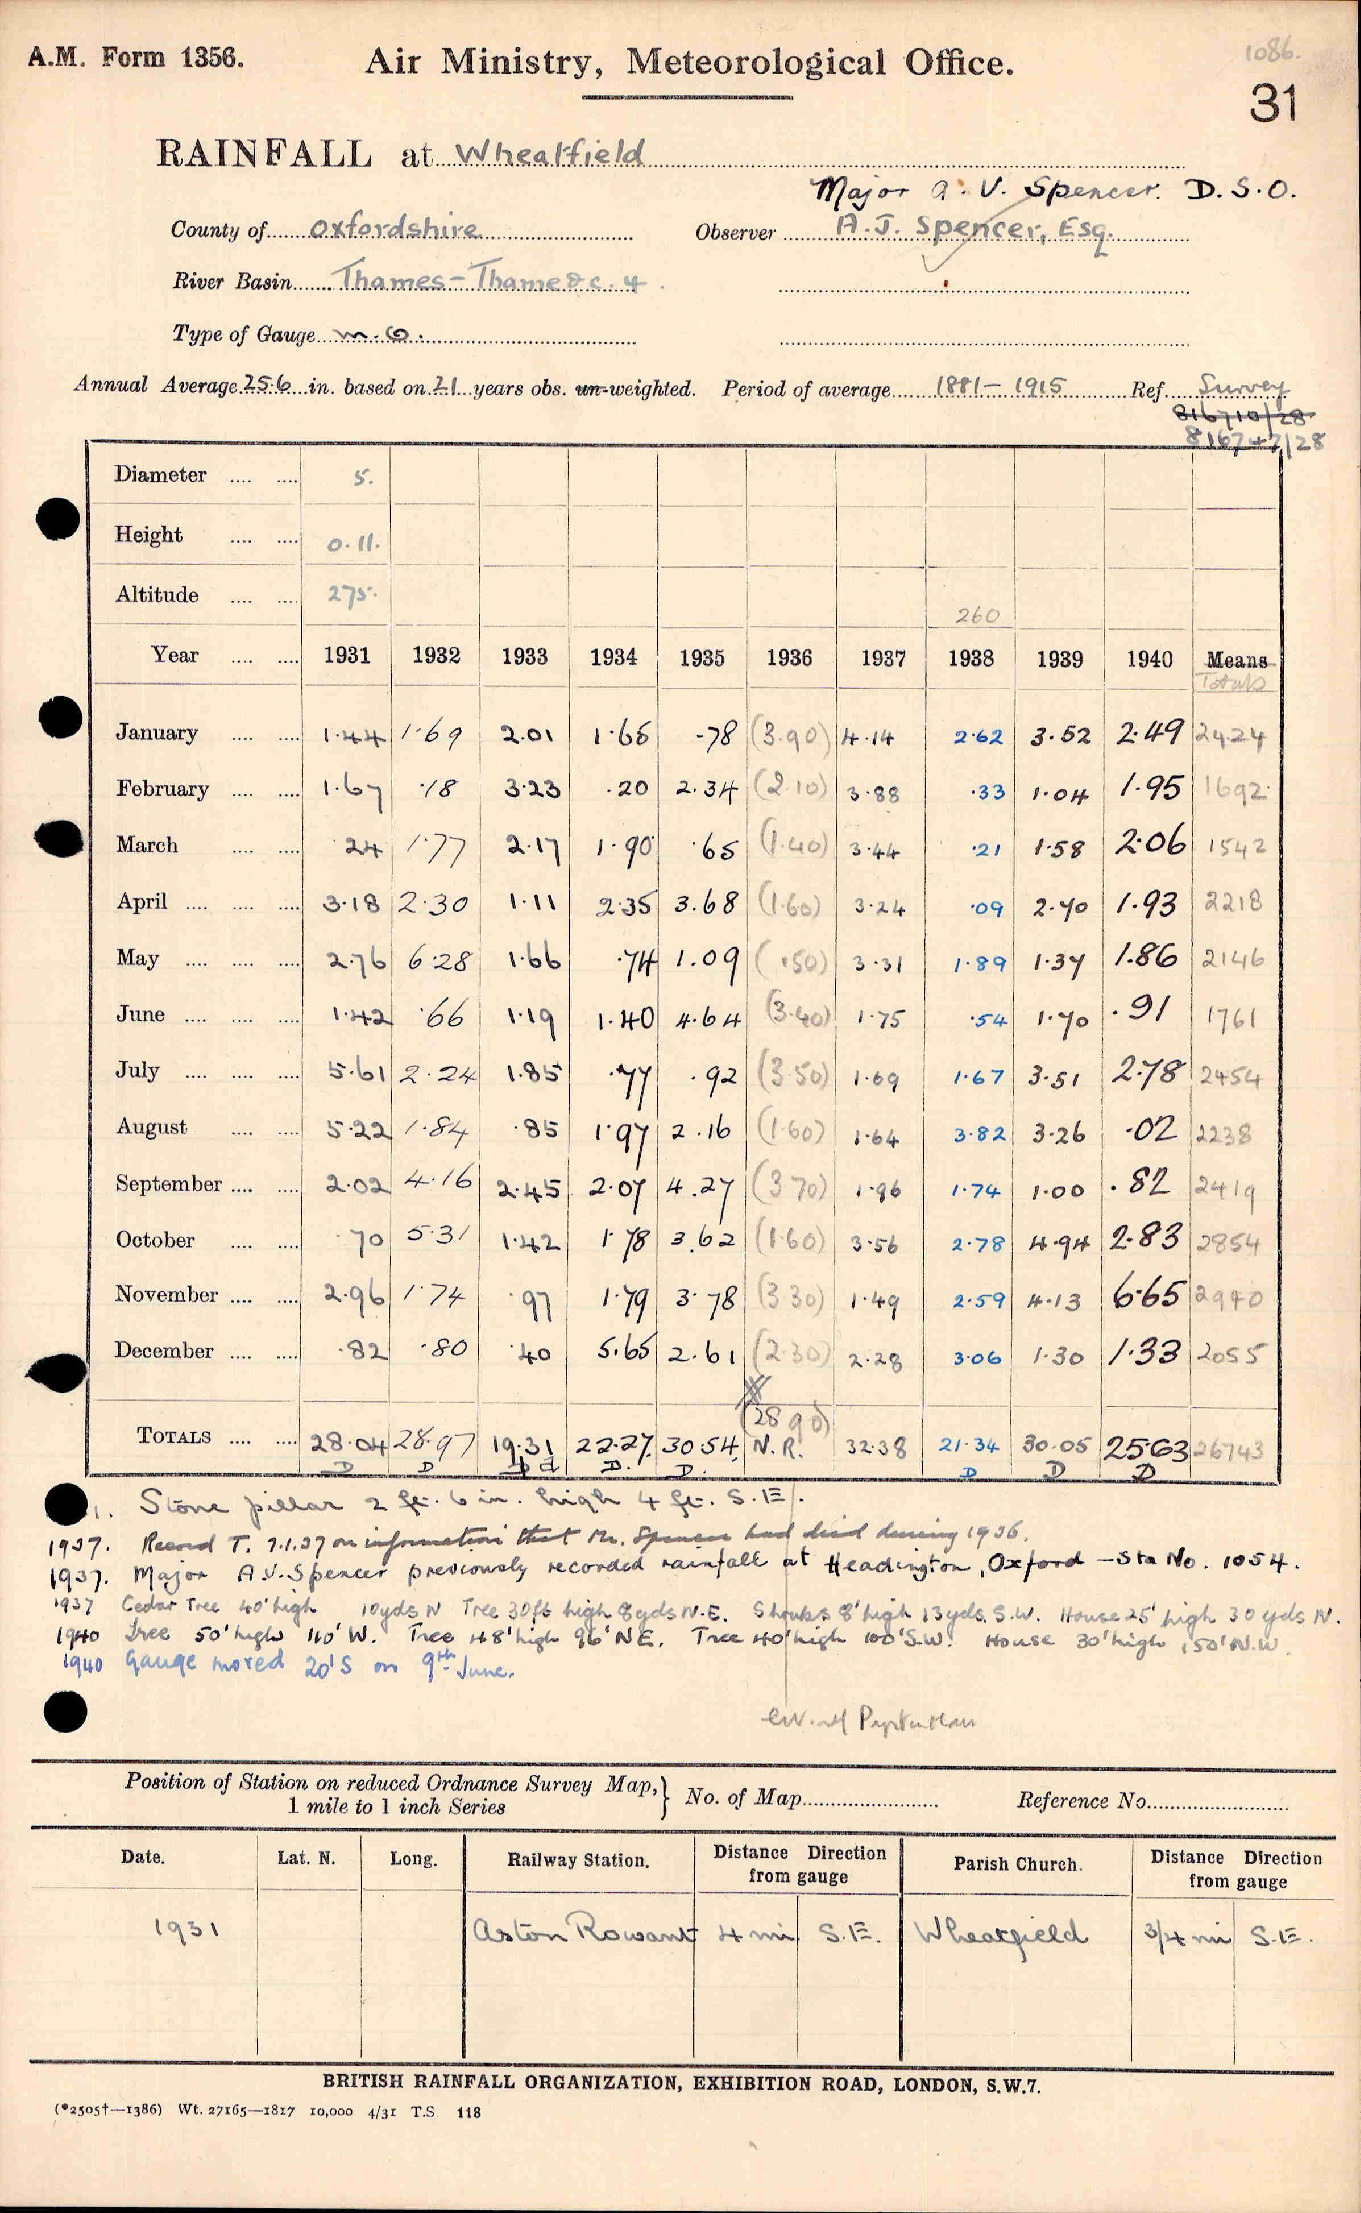 A.M. Form 1356. Air Ministry, Meteorological Office. 1086.
31
RAINFALL at Wheatfield
Major A. V. Spencer. D.S.O.
County of Oxfordshire Observer A. J. Spencer, Esq.
River Basin Thames - Thame &c. 4.
Type of Gauge M.O.
Annual Average 25.6 in. based on 21 years obs. un-weighted. Period of average 1881 - 1915 Ref. Survey
816710/28
816747/28
Diameter .... .... 5.
Height .... .... 0.11.
Altitude .... .... 275. 260
Year .... .... 1931 1932 1933 1934 1935 1936 1937 1938 1939 1940 Means
Totals
January .... .... 1.44 1.69 2.01 1.65 .78 (3.90) 4.14 2.62 3.52 2.49 2424
February .... .... 1.67 .18 3.23 .20 2.34 (2.10) 3.88 .33 1.04 1.95 1692
March .... .... .24 1.77 2.17 1.90 .65 (1.40) 3.44 .21 1.58 2.06 1542
April .... .... .... 3.18 2.30 1.11 2.35 3.68 (1.60) 3.24 .09 2.70 1.93 2218
May .... .... .... 2.76 6.28 1.66 .74 1.09 (.50) 3.31 1.89 1.37 1.86 2146
June .... .... .... 1.42 .66 1.19 1.40 4.64 (3.40) 1.75 .54 1.70 .91 1761
July .... .... .... 5.61 2.24 1.85 .77 .92 (3.50) 1.69 1.67 3.51 2.78 2454
August .... .... 5.22 1.84 .85 1.97 2.16 (1.60) 1.64 3.82 3.26 .02 2238
September .... .... 2.02 4.16 2.45 2.07 4.27 (3.70) 1.96 1.74 1.00 .82 2419
October .... .... .70 5.31 1.42 1.78 3.62 (1.60) 3.56 2.78 4.94 2.83 2854
November .... .... 2.96 1.74 .97 1.79 3.78 (3.30) 1.49 2.59 4.13 6.65 2940
December .... .... .82 .80 .40 5.65 2.61 (2.30) 2.28 3.06 1.30 1.33 2055
(28.90)
TOTALS .... .... 28.04 28.97 19.31 22.27 30.54 N.R. 32.38 21.34 30.05 25.63 26743
D D D D. D. D D D
1. Stone pillar 2 ft. 6 in. high 4 ft. S.E.
1937. Record T. 7.1.37 on information that Mr. Spencer had died during 1936.
1937. Major A.V. Spencer previously recorded rainfall at Headington, Oxford - Stn No. 1054.
1937 Cedar Tree 40' high 10yds N Tree 30ft high 8yds N.E. Shrubs 8' high 13yds. S.W. House 25' high 30 yds N.
1940 Tree 50' high 110' W. Tree 48' high 96' NE. Tree 40' high 100' S.W. House 30' high 150' N.W.
1940 Gauge moved 20' S on 9th June.
Position of Station on reduced Ordnance Survey Map, } No. of Map Reference No.
1 mile to 1 inch Series
Date. Lat. N. Long. Railway Station. Distance Direction from gauge Parish Church. Distance Direction from gauge
1931 Aston Rowant 4 mi S.E. Wheatfield 3/4 mi S.E.
BRITISH RAINFALL ORGANIZATION, EXHIBITION ROAD, LONDON, S.W.7.
(*2505†—1386) Wt. 27165—1817 10,000 4/31 T.S. 118